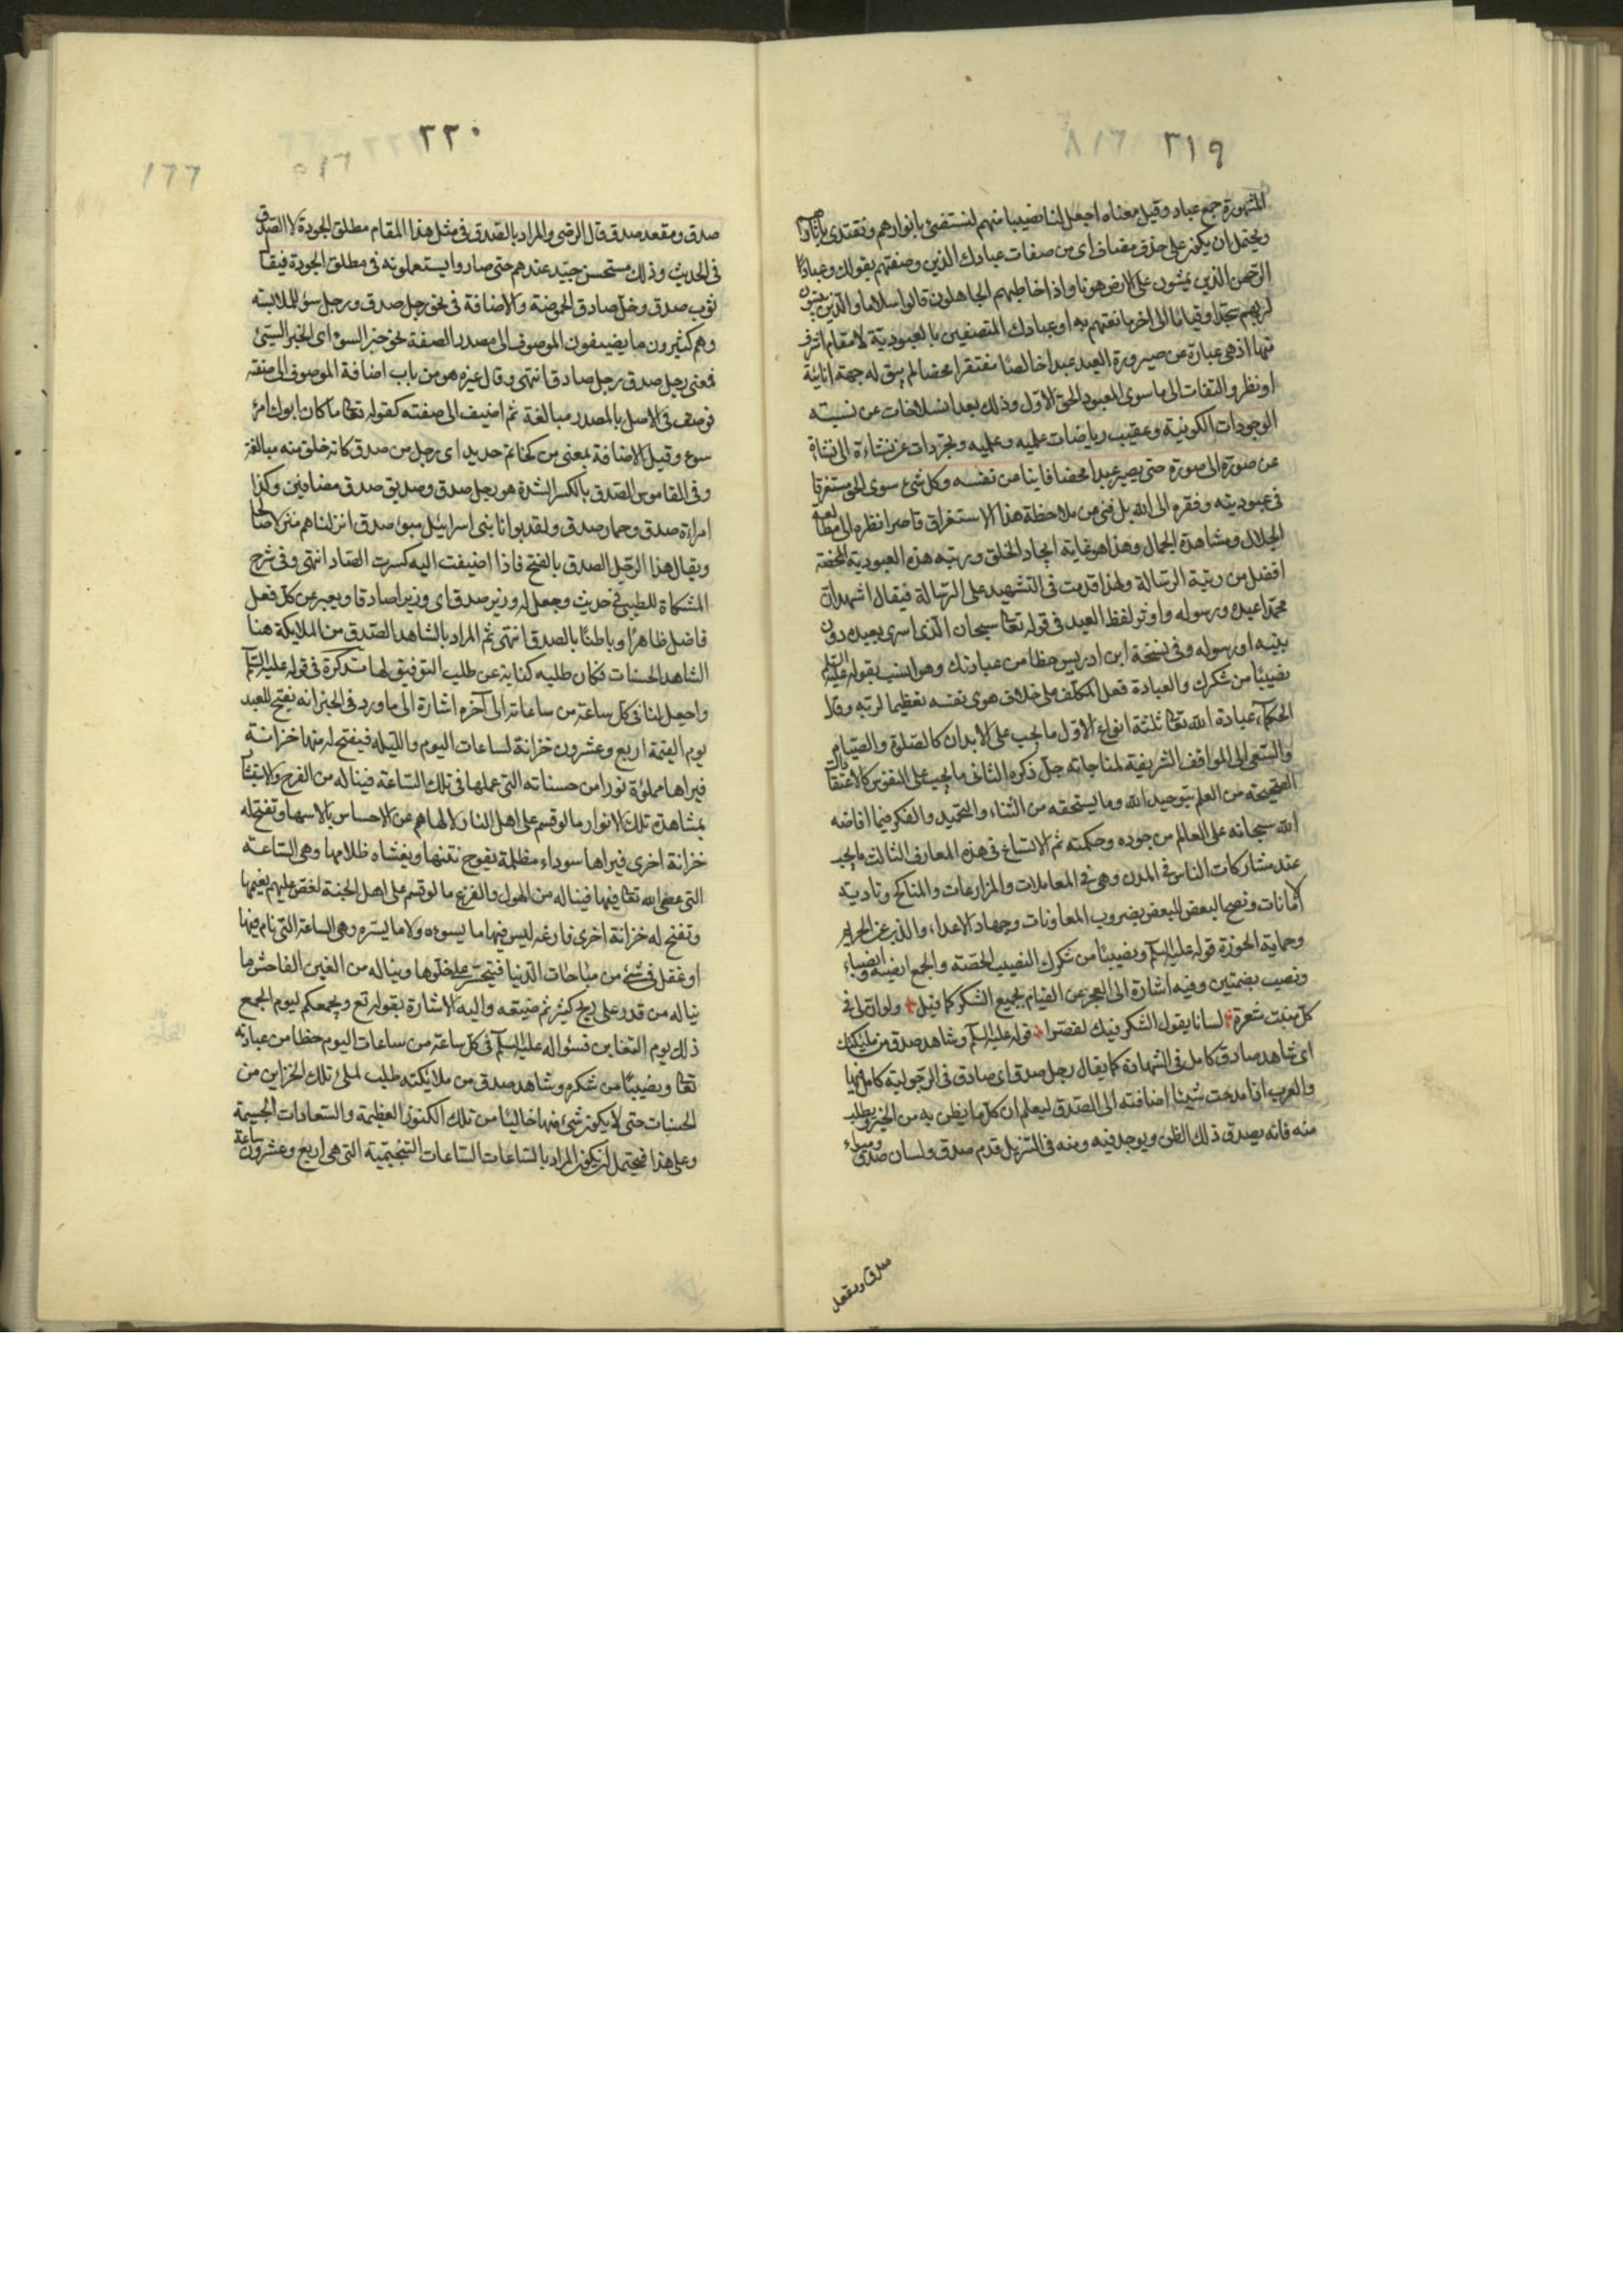 ٣١٩
المشهورة جمع عباد وقيل معناه اجعل لنا نصيبا منهم لنستضئ بانوارهم ونقتدى باثارهم
ويحتمل ان يكون على حذف مضاف اى من صفات عبادك الذين وصفتهم بقولك وعباد
الرحمن الذين يمشون على الارض هونا واذا خاطبهم الجاهلون قالوا سلاما والذين يبيتون
لربهم سجدا وقياما الى اخر ما نعتهم به او عبادك المتصفين بالعبودية لا مقام اشرف
منها اذ هى عبارة عن صيرورة العبد عبدا خالصا مفتقرا محضا لم يبق له جهة انانية
او نظر والتفات الى ما سوى المعبود الحق الاول وذلك بعد انسلاخات عن نسبته
الوجودات الكونية وعقيب رياضات علميه وعمليه وتجردات عن نشاءة الى نشاة
عن صورة الى صورة حتى يصير عبدا محضا فانيا من نفسه وكل شئ سوى الحق مستغرقا
فى عبوديته وفقره الى الله بل فنى من ملاحظة هذا الاستغراق قاصرا نظره الى مطالعه
الجلال ومشاهدة الجمال وهذا هو غاية ايجاد الخلق ورتبه هذه العبودية المحضة
افضل من رتبة الرسالة ولهذا قدمت فى التشهيد على الرسالة فيقال اشهد ان
محمدا عبده ورسوله واوثر لفظ العبد فى قوله تعا سبحان الذى اسرى بعبده دون
بنبيه او رسوله وفى نسخة ابن ادريس حظا من عبادتك وهو انسب بقوله عليه السلم
نصيبا من شكرك والعبادة فعل المكلف على خلاف هوى نفسه تعظيما لربه وقال
الحكماء عبادة الله تعا ثلثة انواع الاول ما يجب على الابدان كالصلوة والصيام
والسعى الى المواقف الشريفة لمناجاته جل ذكره الثانى ما يجب على النفوس كالاعتقادات
الصحيحه من العلم بتوحيد الله وما يستحقه من الثناء والتحميد والفكر فيما افاضه
الله سبحانه على العالم من جوده وحكمته ثم الاتساع فى هذه المعارف الثالث ما يجب
عند مشاركات الناس فى المدن وهى فى المعاملات والمزارعات والمناكح وتادية
الامانات ونصح البعض للبعض بضروب المعاونات وجهاد الاعداء والذب عن الحريم
وحماية الحوزة قوله عليه السلم ونصيبا من شكرك النصيب الحصة والجمع انصبه وانصباء
ونصب بضمتين وفيه اشارة الى العجز عن القيام بجميع الشكر كما قيل ولو ان لى فى
كل منبت شعرة لسانا يقول الشكر فيك لقصرا قوله عليه السلم وشاهد صدق من ملئكتك
اى شاهد صادق كامل فى الشهادة كما يقال رجل صدق اى صادق فى الرجولية كامل فيها
والعرب اذا مدحت شيئا اضافته الى الصدق ليعلم ان كل ما يظن به من الخير ويطلب
منه فانه يصدق ذلك الظن ويوجد فيه ومنه فى التنزيل قدم صدق ولسان صدق ومبوء
صدق ومقعد
٣٢٠
١٦٦
صدق ومقعد صدق قال الرضى والمراد بالصدق فى مثل هذا المقام مطلق الجودة لا الصدق
فى الحديث وذلك مستحسن جيد عندهم حتى صاروا يستعملونه فى مطلق الجودة فيقا
ثوب صدق وخل صادق الحموضة والاضافة فى نحو رجل صدق ورجل سوء للملابسة
وهم كثيرون ما يضيفون الموصوف الى مصدر الصفة نحو خبر السوء اى الخبر السيئ
فمعنى رجل صدق رجل صادق انتهى وقال غيره هو من باب اضافة الموصوف الى صفته
فوصف فى الاصل بالمصدر مبالغة ثم اضيف الى صفته كقوله تعا ما كان ابوك امرء
سوء وقيل الاضافة بمعنى من كخاتم حديد اى رجل من صدق كانه خلق منه مبالغة
وفى القاموس الصدق بالكسر الشدة هو رجل صدق وصديق صدق مضافين وكذا
امراءة صدق وحمار صدق ولقد بوانا بنى اسرائيل مبوء صدق انزلناهم منزلا صالحا
ويقال هذا الرجل الصدق بالفتح فاذا اضيفت اليه كسرت الصاد انتهى وفى شرح
المشكاة للطيبى فى حديث وجعل له وزير صدق اى وزيرا صادقا ويعبر عن كل فعل
فاضل ظاهرا وباطنا بالصدق انتهى ثم المراد بالشاهد الصدق من الملايكة هنا
الشاهد الحسنات فكان طلبه كناية عن طلب التوفيق لها تذكرة فى قوله عليه السلم
واجعل لنا فى كل ساعة من ساعاته الى آخره اشارة الى ما ورد فى الخبر انه يفتح للعبد
يوم القيمة اربع وعشرون خزانة لساعات اليوم والليله فيفتح له منها خزانة
فيراها مملوءة نورا من حسناته التى عملها فى تلك الساعة فيناله من الفرح والاستبشا
بمشاهدة تلك الانوار ما لو قسم على اهل النار لالهاهم عن الاحساس بالامها وتفتح له
خزانة اخرى فيراها سوداء مظلمة يفوح نتنها ويغشاه ظلامها وهى الساعة
التى عصى الله تعا فيها فيناله من الهول والفزع ما لو قسم على اهل الجنة لنغص عليهم نعيمها
وتفتح له خزانة اخرى فارغه ليس فيها ما يسوءه ولا ما يسره وهى الساعة التى نام فيها
او غفل فى شئ من مباحات الدنيا فيتحسر على خلوها ويناله من الغبن الفاحش ما
يناله من قدر على ربح كثير ثم ضيعه واليه الاشارة بقوله تع ويجمعكم ليوم الجمع
ذلك يوم التغابن فسئواله عليه السلم فى كل ساعة من ساعات اليوم حظا من عبادته
تعا ونصيبا من شكره وشاهد صدق من ملايكته طلب لملئ تلك الخزاين من
الحسنات حتى لا يكون شئ منها خاليا من تلك الكنوز العظيمة والسعادات الجسيمة
وعلى هذا فيحتمل ان يكون المراد بالساعات الساعات التنجيمية التى هى اربع وعشرون ساعة